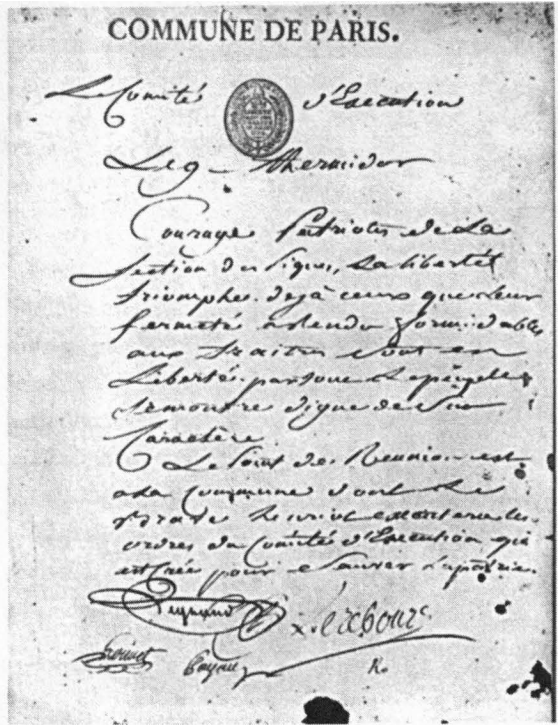 COMMUNE DE PARIS.
Le Comité d'Execution
Le 9 thermidor
Courage Patriotes de La
Section des Piques, La liberté
triomphe. deja ceux que Leur
fermeté a rendu formidables
aux traitres sont en
Liberté. partout Le peuple
se montre digne de son
Caractère
Le Point de Reunion est
a La Commune dont Le
brave Henriot executera les
ordres du Comité d'Execution qui
est crée pour Sauver La patrie.
Legrand Lerebours
Payan R.